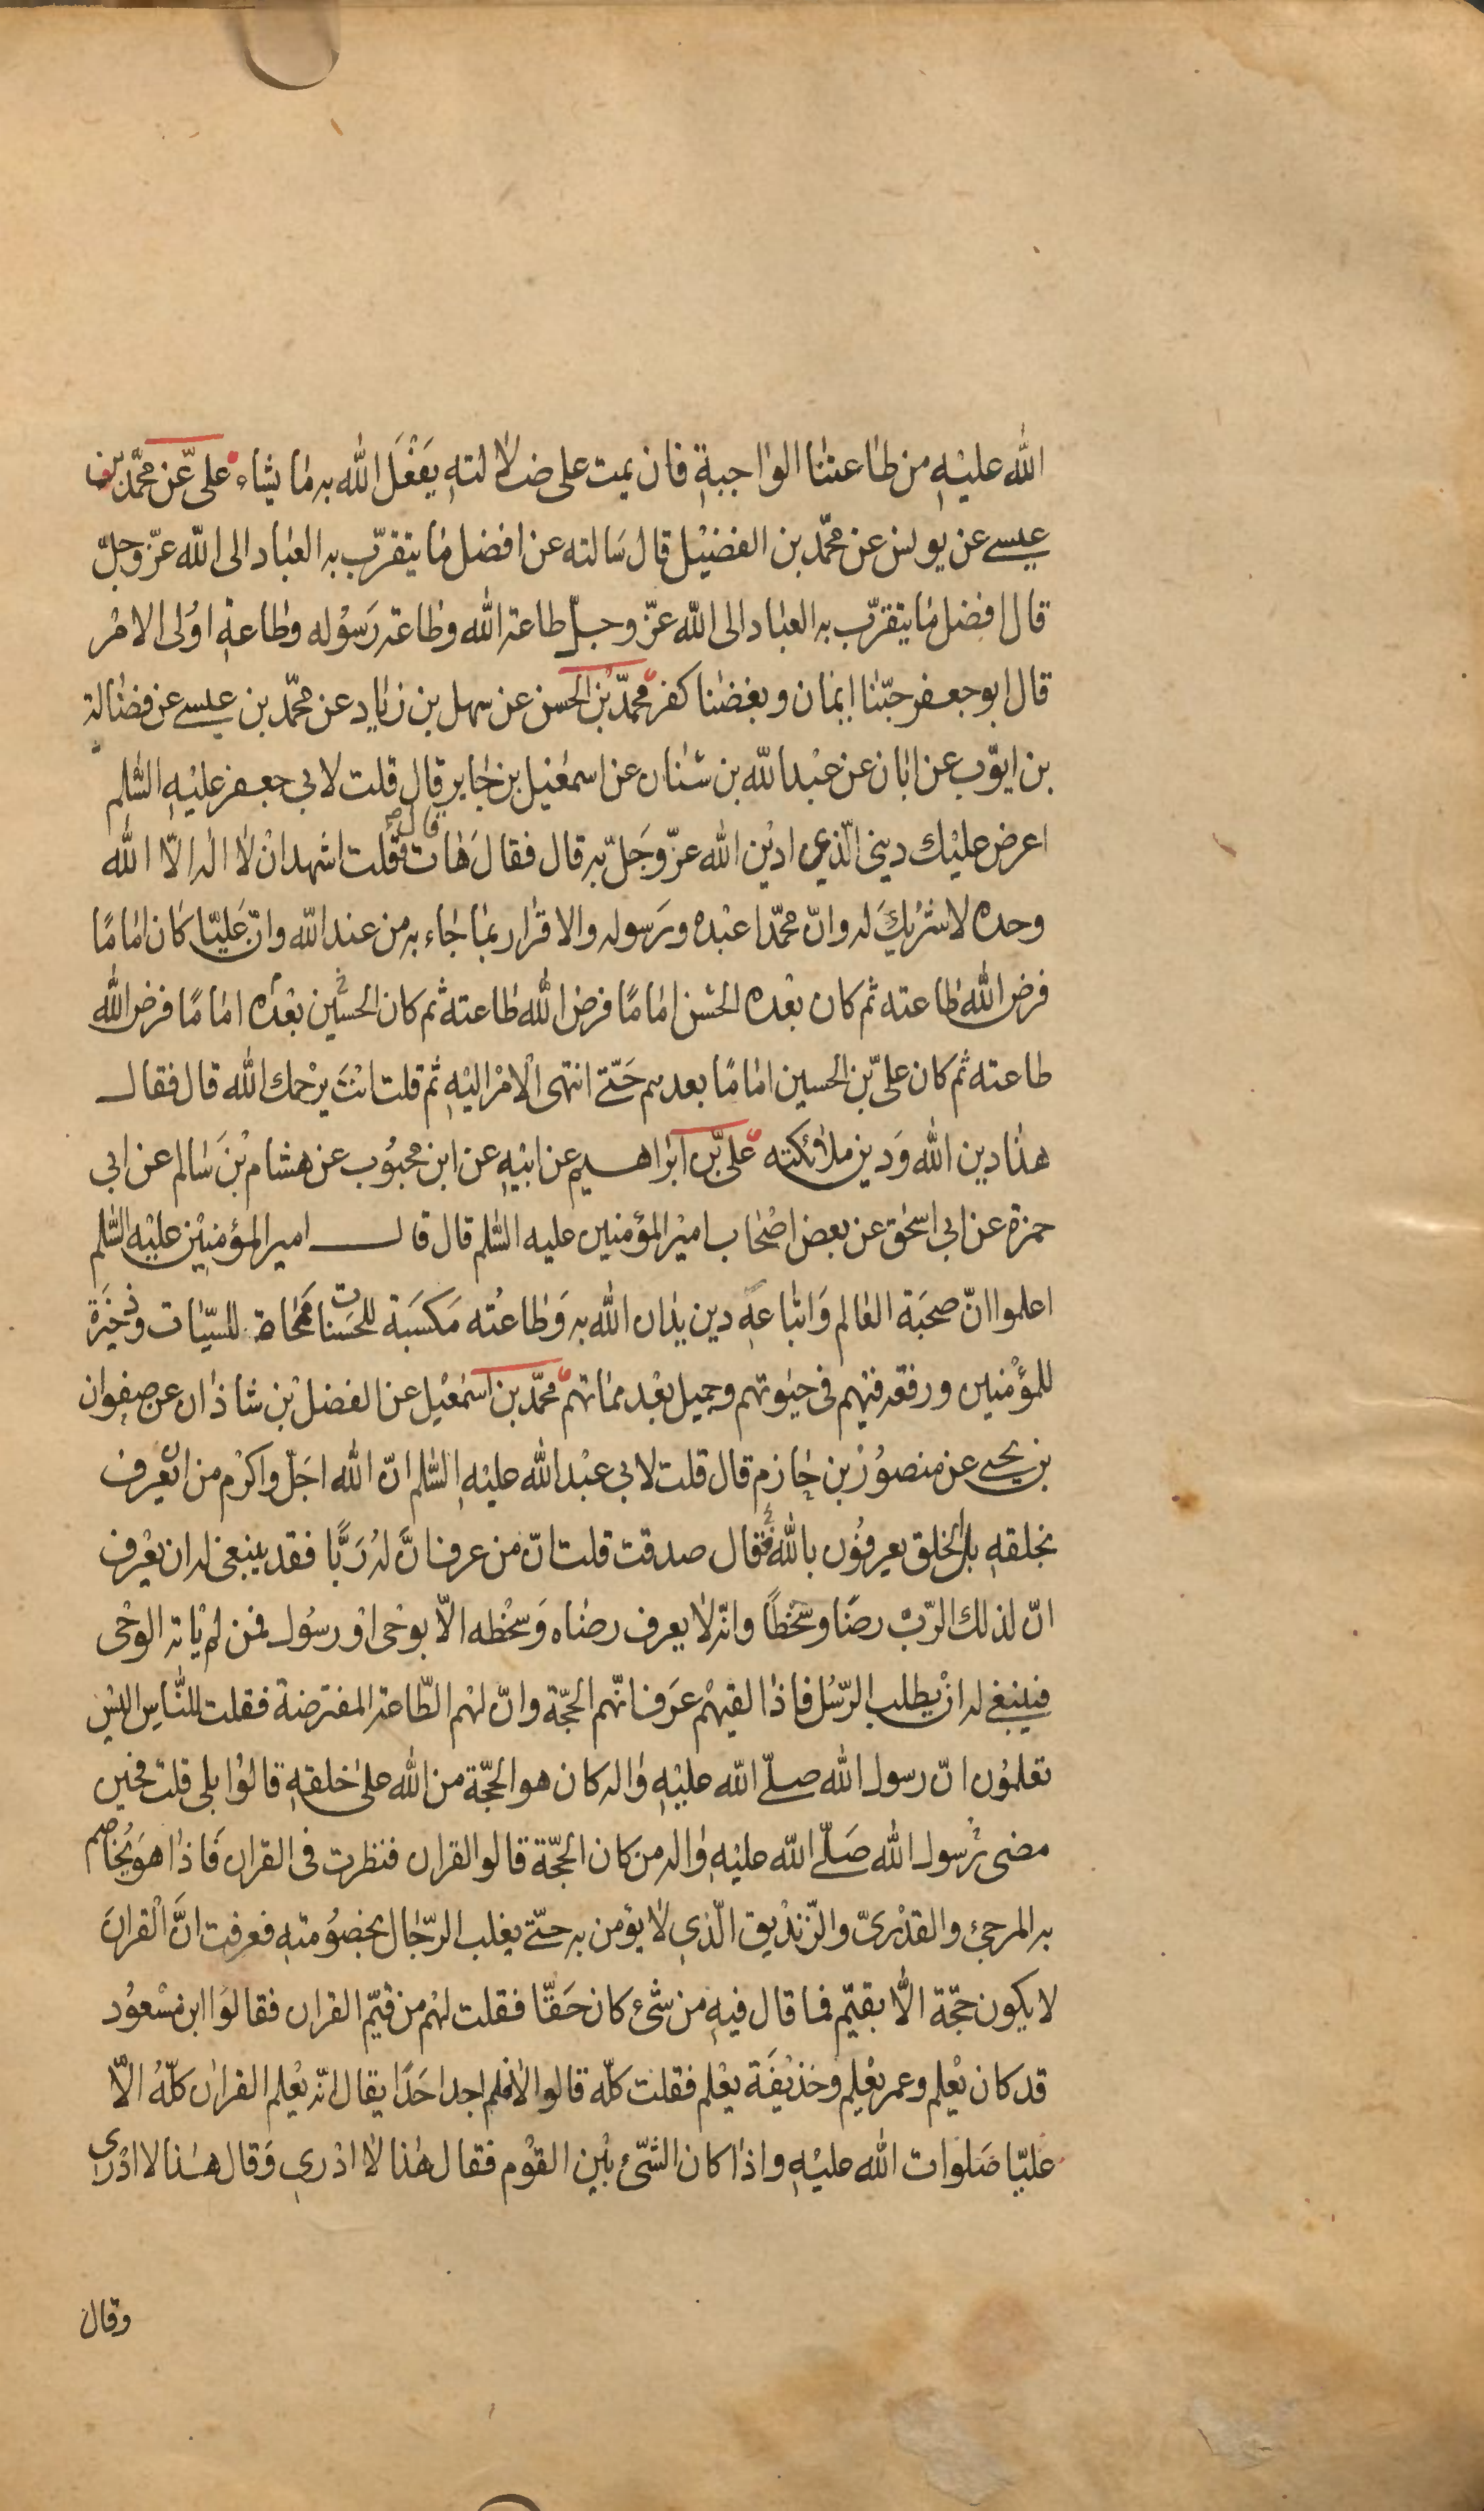 الله عليه من طاعتنا الواجبة فان يمت على ضلالته يفعل الله به ما يشاء علىّ عن محمّد بن
عيسى عن يونس عن محمّد بن الفضيل قال سالته عن افضل ما يتقرّب به العباد الى الله عزّ وجلّ
قال افضل ما يتقرّب به العباد الى الله عزّ وجلّ طاعة الله وطاعة رسوله وطاعة اولى الامر
قال ابو جعفر حبّنا ايمان وبغضنا كفر محمّد بن الحسن عن سهل بن زياد عن محمّد بن عيسى عن فضالة
بن ايّوب عن ابان عن عبد الله بن سنان عن اسمعيل بن جابر قال قلت لابي جعفر عليه السّلم
اعرض عليك ديني الّذي ادين الله عزّ وجلّ به قال فقال هات قال فقلت اشهد ان لا اله الّا الله
وحده لا شريك له وانّ محمّدا عبده ورسوله والاقرار بما جاء به من عند الله وانّ عليّا كان اماما
فرض الله طاعته ثم كان بعده الحسن اماما فرض الله طاعته ثم كان الحسين بعده اماما فرض الله
طاعته ثم كان علىّ بن الحسين اماما بعدهم حتّى انتهى الامر اليه ثم قلت انت يرحمك الله قال فقال
هذا دين الله ودين ملائكته علىّ بن ابراهيم عن ابيه عن ابن محبوب عن هشام بن سالم عن ابي
حمزة عن ابي اسحق عن بعض اصحاب امير المؤمنين عليه السّلم قال قال امير المؤمنين عليه السّلم
اعلموا انّ صحبة العالم واتّباعه دين يدان الله به وطاعته مكسبة للحسنات ممحاة للسيّئات وذخيرة
للمؤمنين ورفعة فيهم في حيوتهم وجميل بعد مماتهم محمّد بن اسمعيل عن الفضل بن شاذان عن صفوان
بن يحيى عن منصور بن حازم قال قلت لابي عبد الله عليه السّلم انّ الله اجلّ واكرم من ان يعرف
بخلقه بل الخلق يعرفون بالله فقال صدقت قلت انّ من عرف انّ له ربّا فقد ينبغى له ان يعرف
انّ لذلك الرّبّ رضا وسخطا وانّه لا يعرف رضاه وسخطه الّا بوحى او رسول فمن لم ياته الوحى
فينبغى له ان يطلب الرّسل فاذا لقيهم عرف انّهم الحجّة وانّ لهم الطّاعة المفترضة فقلت للنّاس اليس
تعلمون انّ رسول الله صلّى الله عليه واله كان هو الحجّة من الله على خلقه قالوا بلى قلت فحين
مضى رسول الله صلّى الله عليه واله من كان الحجّة قالوا القران فنظرت في القران فاذا هو يخاصم
به المرجئ والقدرىّ والزّنديق الّذي لا يؤمن به حتّى يغلب الرّجال بخصومته فعرفت انّ القران
لا يكون حجّة الّا بقيّم فما قال فيه من شئ كان حقّا فقلت لهم من قيّم القران فقالوا ابن مسعود
قد كان يعلم وعمر يعلم وحذيفة يعلم فقلت كلّه قالوا لا فلم اجد احدا يقال انّه يعلم القران كلّه الّا
عليّا صلوات الله عليه واذا كان الشّئ بين القوم فقال هذا لا ادري وقال هذا لا ادرى
وقال